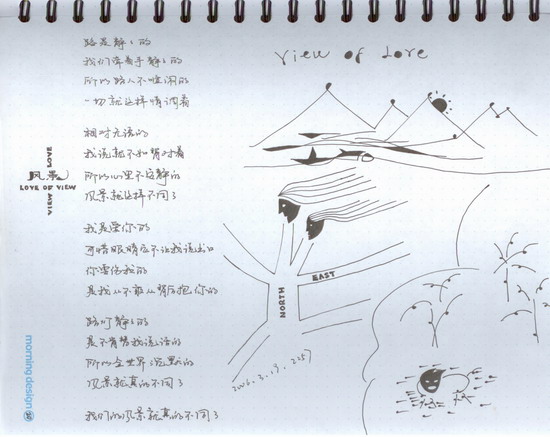 View of Love
路是静静的
我们牵着手静静的
所以路人不喧闹的
一切就这样情调着
相对无语的
我说就不如背对着
所以心里不寂静的
风景就这样不同了
我是爱你的
可惜眼睛应不让我说出口
你需信我的
是我从不敢从背后抱你的
路灯静静的
是不肯帮我说话的
所以全世界沉默的
风景就真的不同了
我们的风景就真的不同了
风景
LOVE OF VIEW
LOVE
VIEW
EAST
NORTH
morning design